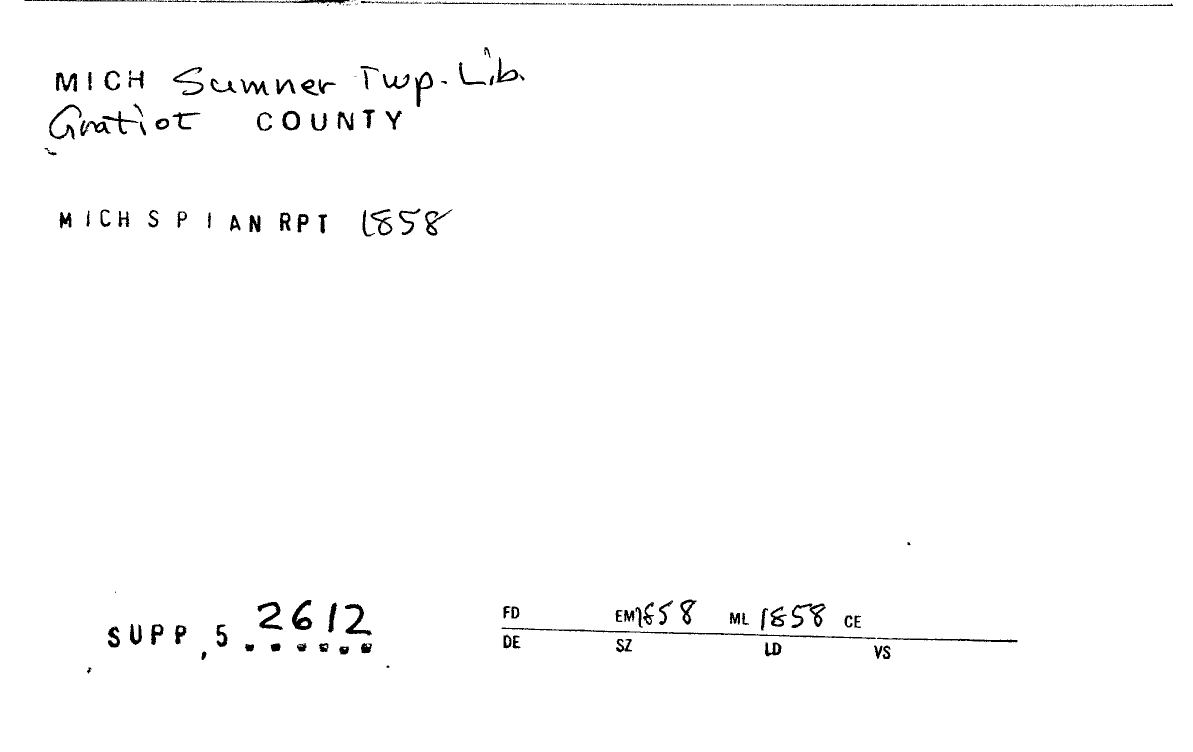 MICH Sumner Twp. Lib.
Gratiot COUNTY
MICH S P I AN RPT 1858
SUPP, 5 2612
FD EM 1858 ML 1858 CE
DE SZ LD VS